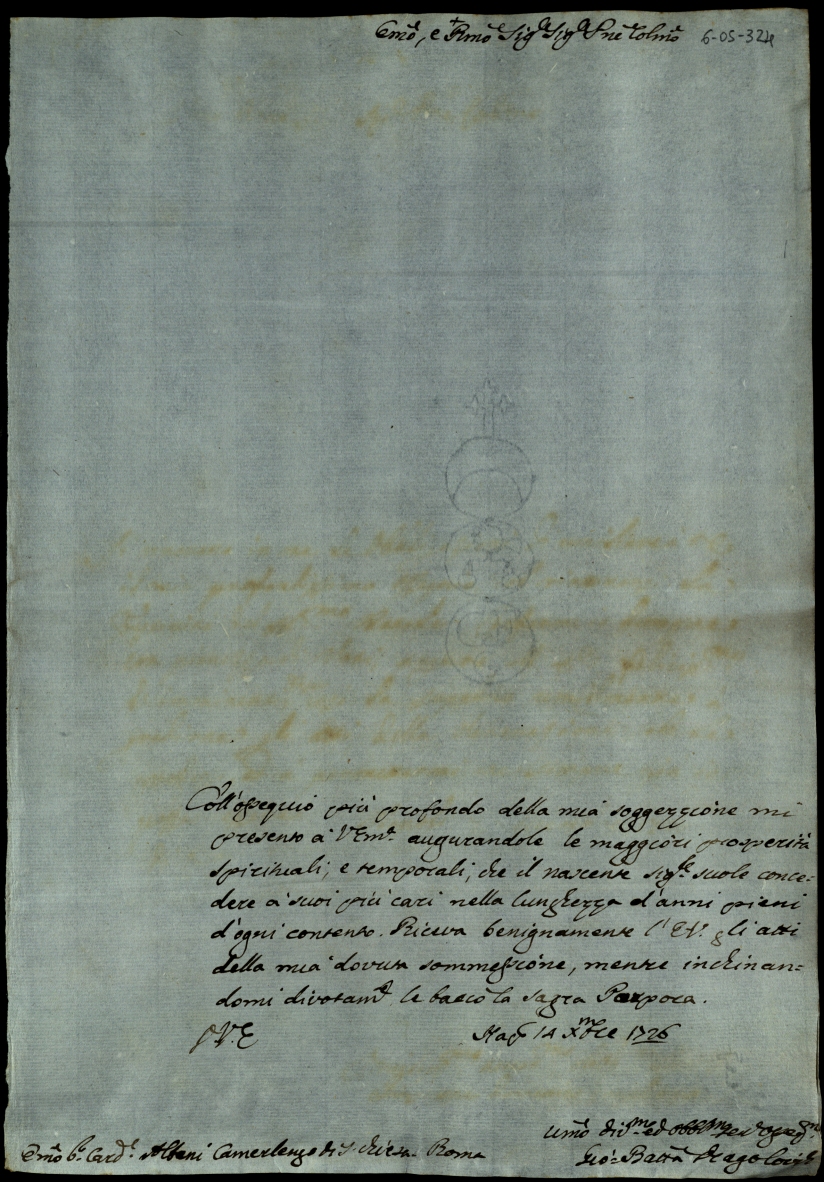 Emõ, e Rmõ Sig.r Sig.r Pne Colmõ 6-05-324
Coll'ossequio più profondo della mia soggezzione mi
presento à V Em.a augurandole le maggiori prosperità
spirituali, e temporali, che il nascente Sig.re suole conce-
dere à suoi più cari nella lunghezza d'anni pieni
d'ogni contento. Riceva benignamente l'E.V. gli atti
della mia dovuta sommessione, mentre inchinan-
domi divotam.e le bacio la sagra Porpora.
D.V.E. Nap. 14 Xmbre 1726
Umõ div.mo ed obblig.mo
Emõ S.r Card.l Albani Camerlengo di S. Chiesa. Roma Gio: Batta